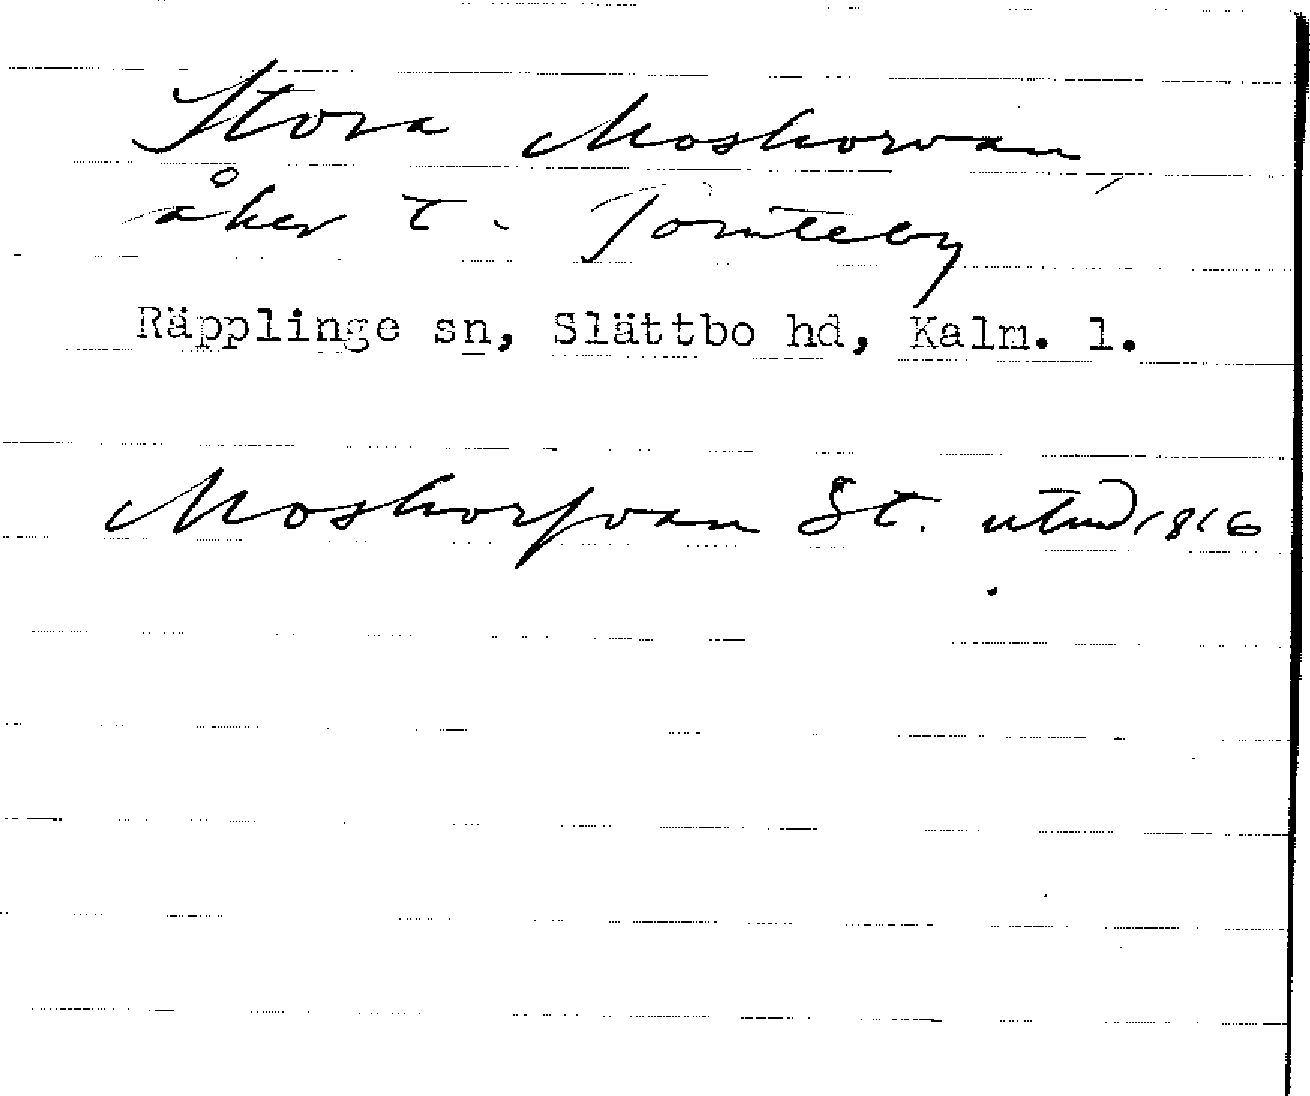 Stora Moskorvan
åker t. Tomteby
Räpplinge sn, Slättbo hd, Kalm. l.
Moskorfvan St. utmd 1816